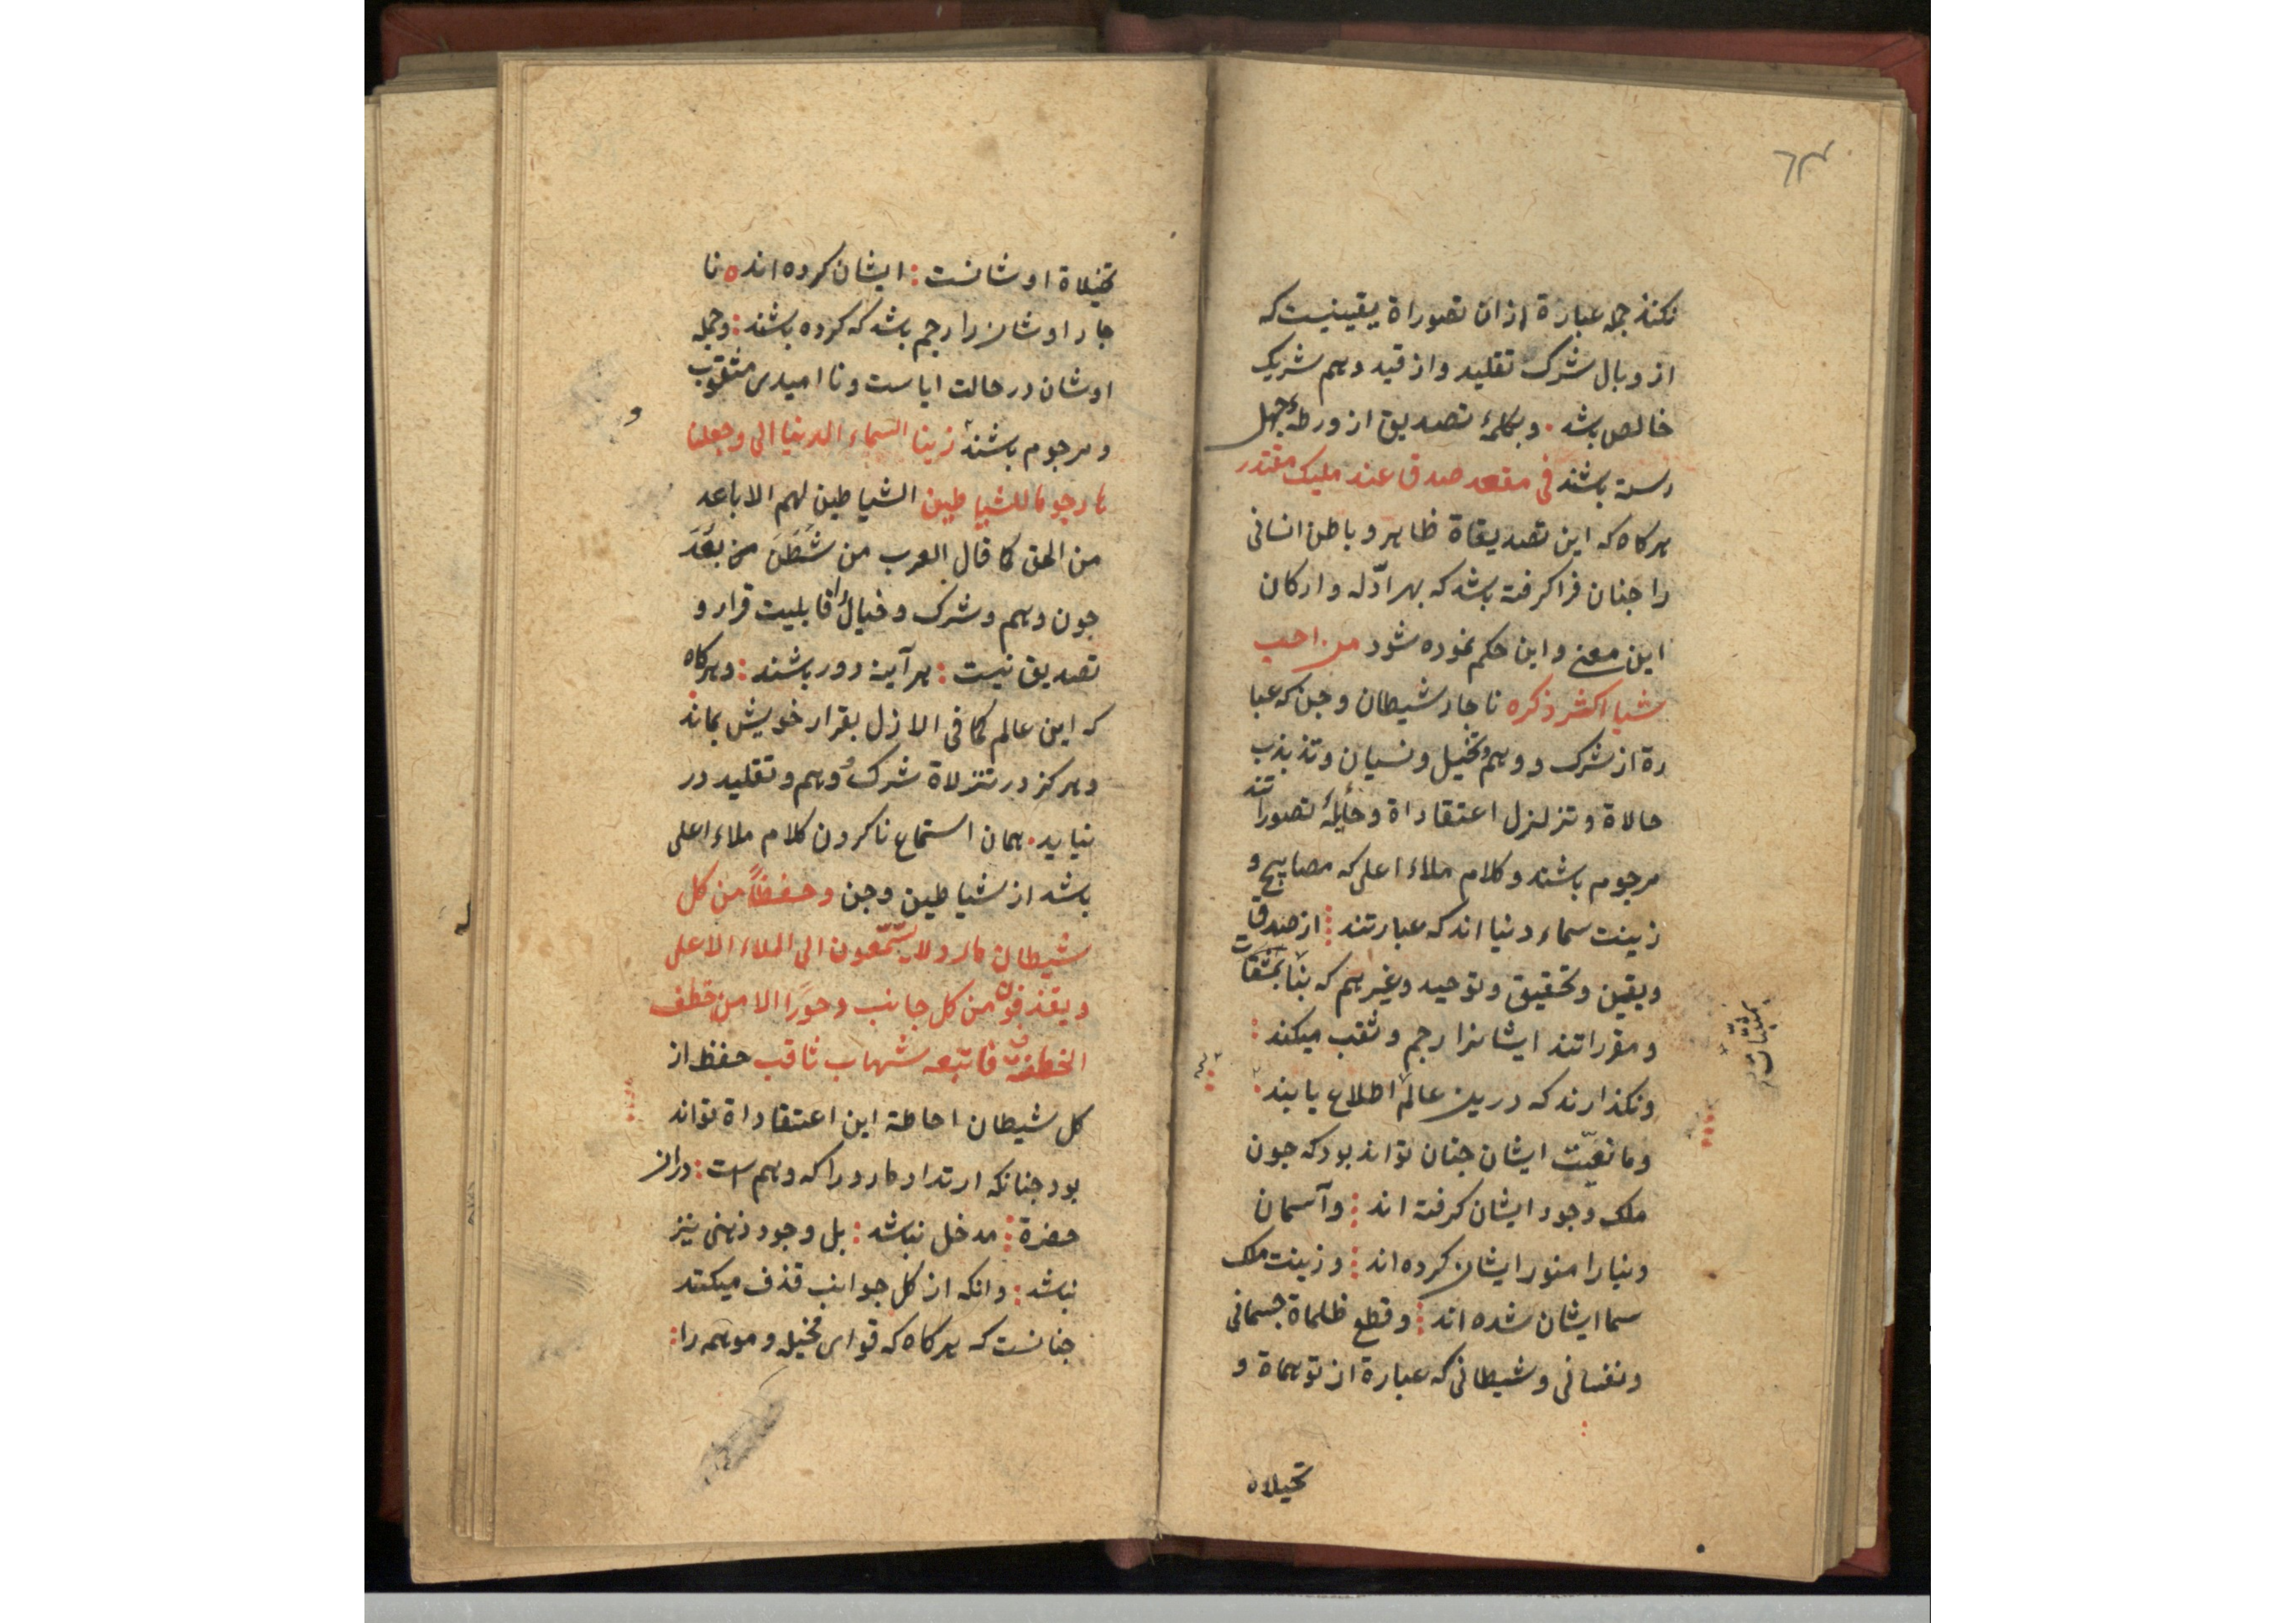 نکنند چه عبارة ازان تصوراة یقینیست که
از وبال شرک تقلید و از قید وهم شریک
خالص باشد . و بکلمهٔ تصدیق از ورطهٔ جهل
رسته باشند فی مقعد صدق عند ملیک مقتدر
هرکاه که این تصدیقاة ظاهر و باطن انسانی
را جنان فراکرفته باشد که بهر ادّله و ارکان
این معنے و این حکم نموده شود من احب
شیا اکثر ذکره ناجار شیطان و جن که عبا
رة از شرک و وهم و تخیل و نسیان و تذبذب
حالاة و تزلزل اعتقاداة و تصوراتند
مرجوم باشند و کلام ملاء اعلی که مصابیح و
زینت سماء دنیا اند که عبارتند : از صدق
و یقین و تحقیق و توحید و غیرهم که
و مقراتند ایشانرا رجم و ثقب میکند :
و نکذارند که درین عالم اطلاع یابند .
و مانعیّت ایشان جنان تواند بود که جون
ملک وجود ایشان کرفته اند : و آسمان
دنیا را منور ایشان کرده اند : و زینت ملک
سما ایشان شده اند : و قطع ظلماة جسمانی
و نفسانی و شیطانی که عبارة از توهماة و
تخیلاه
تخیلاة اوشانست : ایشان کرده اند ه نا
جار اوشان را رجم باشد که کرده باشند : و جمله
اوشان در حالت ایاست و نا امیدی مثقوب
و مرجوم باشند زینا السماء الدنیا الی و جعلنا
ها رجوما للشیاطین الشیاطین لهم الاباعد
من الحق کما قال العرب من شَطَنَ من بَعَدَ
جون وهم و شرک و خیال را قابلیت قرار و
تصدیق نیست : هر آینه دور باشند : و هرکاه
که این عالم کما فی الازل بقرار خویش بماند
و هرکز در تنزلاة شرک و وهم و تقلید در
نیاید . همان استماع ناکردن کلام ملاء اعلی
باشد از شیاطین و جن و حفظاً من کل
شیطان مارد لا یسّمّعون الی الملاء الاعلی
و یقذفون من کل جانب دحورًا الا من خطف
الخطفة فاتبعه شهاب ثاقب حفظ از
کل شیطان احاطة این اعتقاداة تواند
بود جنانکه ارتداد مارد را که وهم است : دران
حضرة : مدخل نباشد : بل وجود ذهنی نیز
نباشد : و انکه از کل جوانب قذف میکند
جنانست که هرکاه که قوای مخیله و موهمه را :